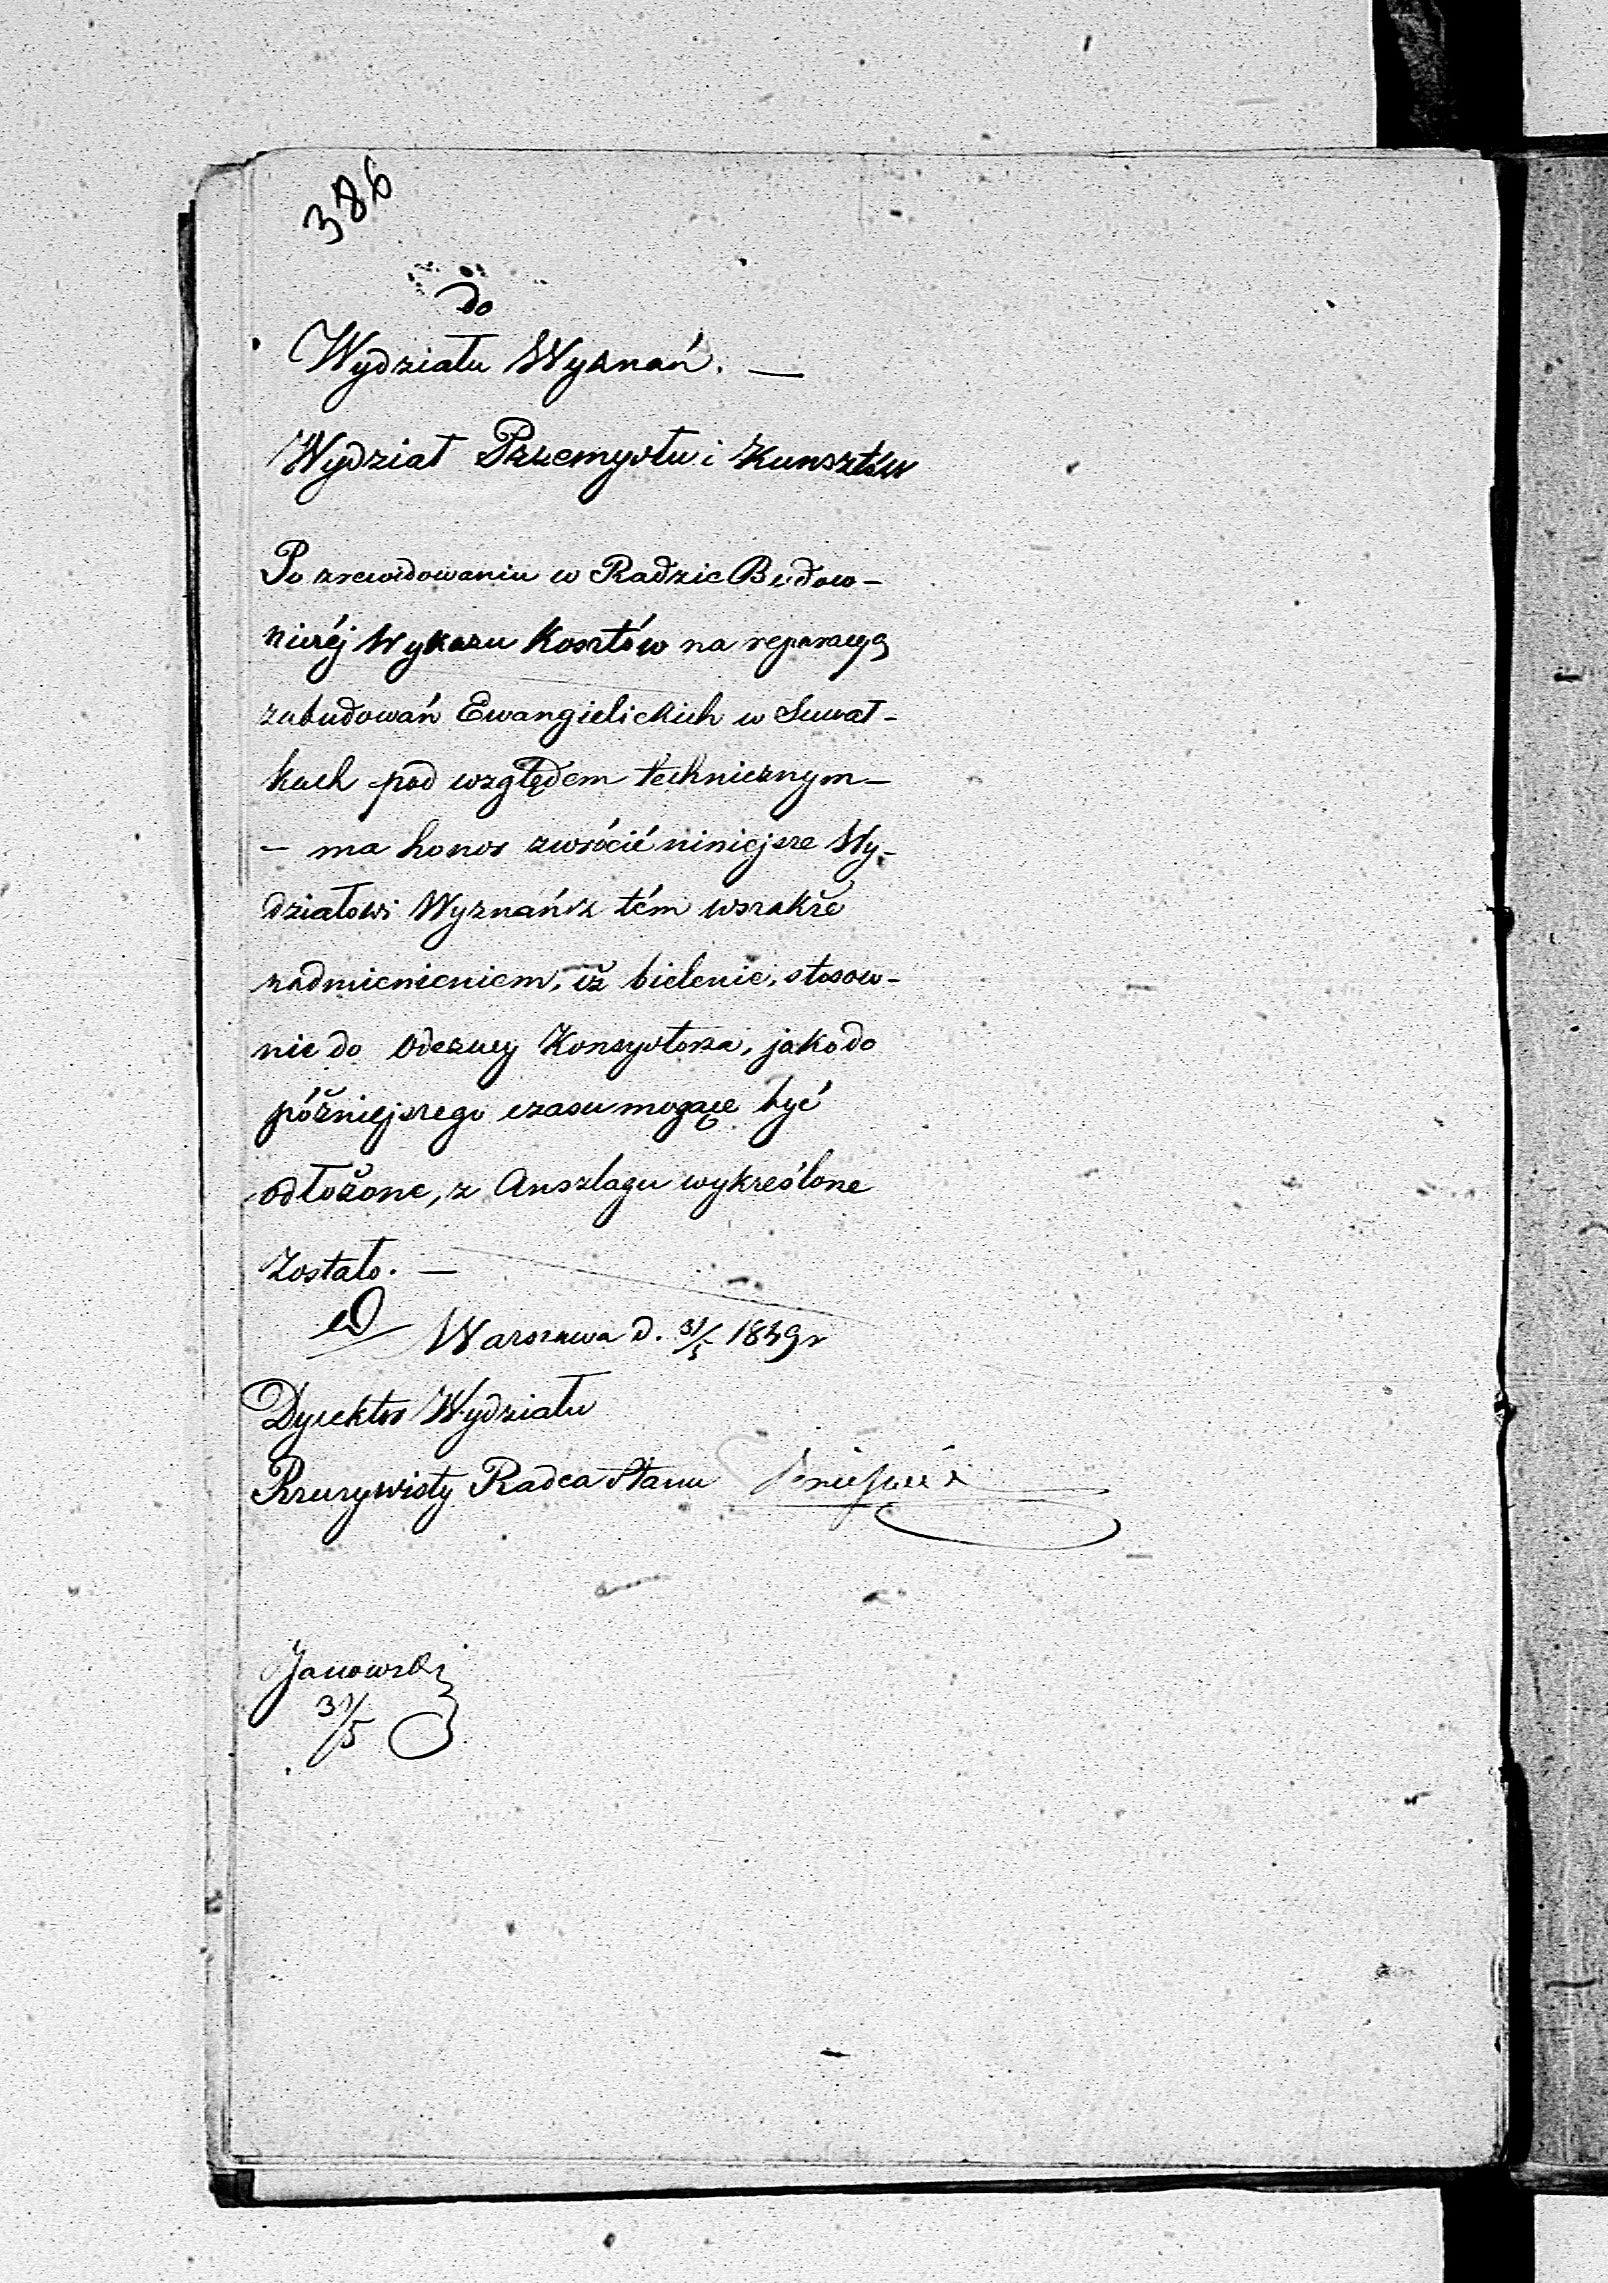 386
do
Wydziału Wyznań. —
Wydział Przemysłu i Kunsztów
Po zrewidowaniu w Radzie Budow-
niczéj Wykazu Kosztów na reparacyą
zabudowań Ewangielickich w Suwał-
kach pod względem technicznym —
— ma honor zwrócić niniejsze Wy-
działowi Wyznań z tém wszakże
nadmienieniem, iż bielenie, stosow-
nie do Odezwy Konsystorza, jako do
późniejszego czasu mogące być
odłożone, z Anszlagu wykreślone
Zostało. —
Warszawa d. 31/5 1849 r
Dyrektor Wydziału
Rzeczywisty Radca Stanu
Janowski
31/5